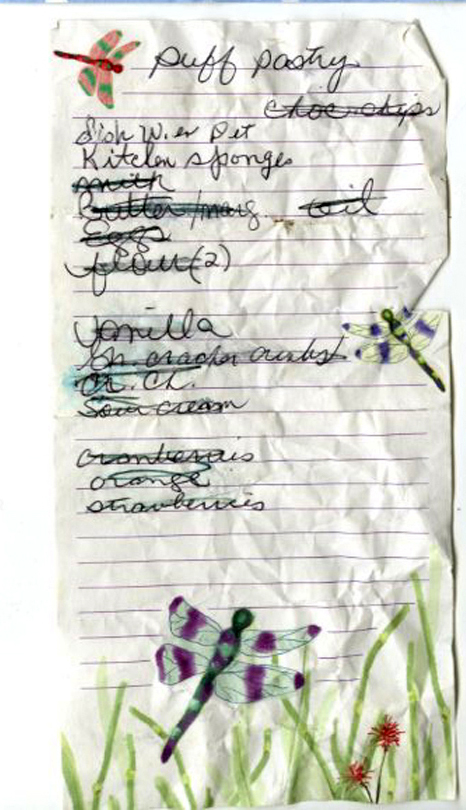 puff pastry
choc chips
dish W.er Det
Kitchen sponges
milk
Butter/marg. oil
Eggs
flour (2)
Vanilla
Gr. cracker crumbs
Cr. Ch.
Sour cream
cranberries
orange
strawberries